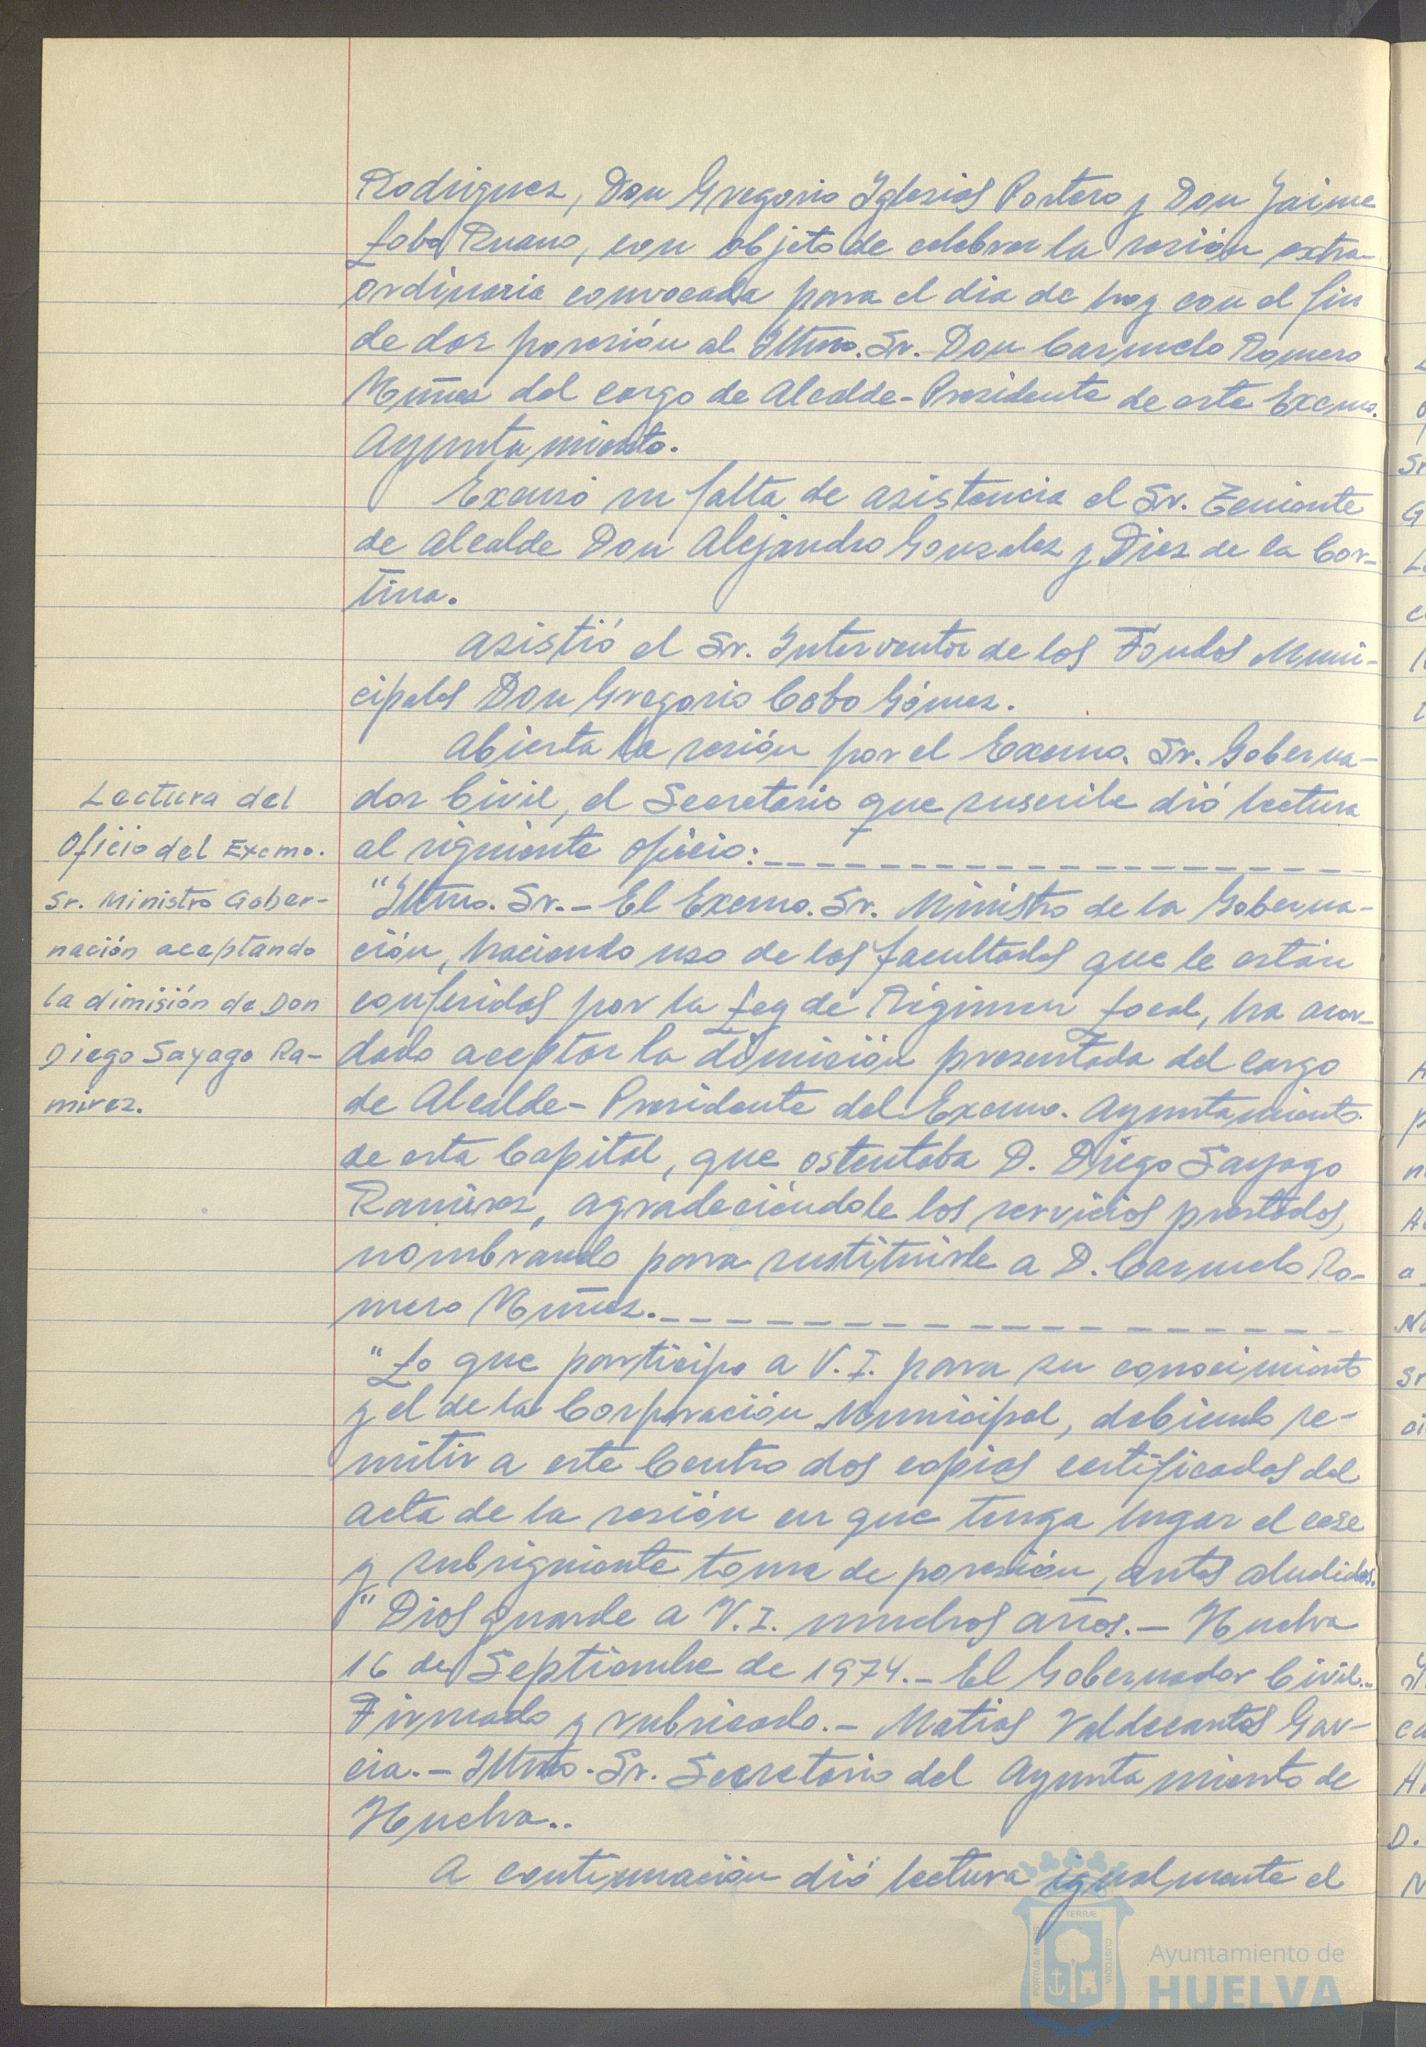 Rodriguez, Don Gregorio Yglesias Portero y Don Jaime
Lobo Ruano, con objeto de celebrar la sesión extra-
ordinaria convocada para el dia de hoy con el fin
de dar posesión al Yltmo. Sr. Don Carmelo Romero
Muñoz del cargo de Alcalde-Presidente de este Excmo.
Ayuntamiento.
Excusó su falta de asistencia el Sr. Teniente
de Alcalde Don Alejandro Gonzalez y Diez de la Cor-
tina.
Asistió el Sr. Interventor de los Fondos Muni-
cipales Don Gregorio Cobo Gómez.
Abierta la sesión por el Excmo. Sr. Goberna-
dor Civil, el Secretario que suscribe dió lectura
al siguiente oficio:
Lectura del
Oficio del Excmo.
Sr. Ministro Gober-
nación aceptando
la dimisión de Don
Diego Sayago Ra-
mirez.
"Yltmo. Sr.- El Excmo. Sr. Ministro de la Goberna-
ción, haciendo uso de las facultades que le están
conferidas por la Ley de Régimen Local, ha acor-
dado aceptar la dimisión presentada del cargo
de Alcalde-Presidente del Excmo. Ayuntamiento
de esta Capital, que ostentaba D. Diego Sayago
Ramirez, agradeciéndole los servicios prestados,
nombrando para sustituirle a D. Carmelo Ro-
mero Muñoz.
"Lo que participo a V.I. para su conocimiento
y el de la Corporación Municipal, debiendo re-
mitir a este Centro dos copias certificadas del
acta de la sesión en que tenga lugar el cese
y subsiguiente toma de posesión, antes aludidos.
"Dios guarde a V.I. muchos años.- Huelva
16 de Septiembre de 1974.- El Gobernador Civil.-
Firmado y rubricado.- Matias Valdecantos Gar-
cia.- Yltmo. Sr. Secretario del Ayuntamiento de
Huelva..
A continuación dió lectura igualmente el
PORTUS MARIS
TERRAE
CUSTODIA
Ayuntamiento de
HUELVA